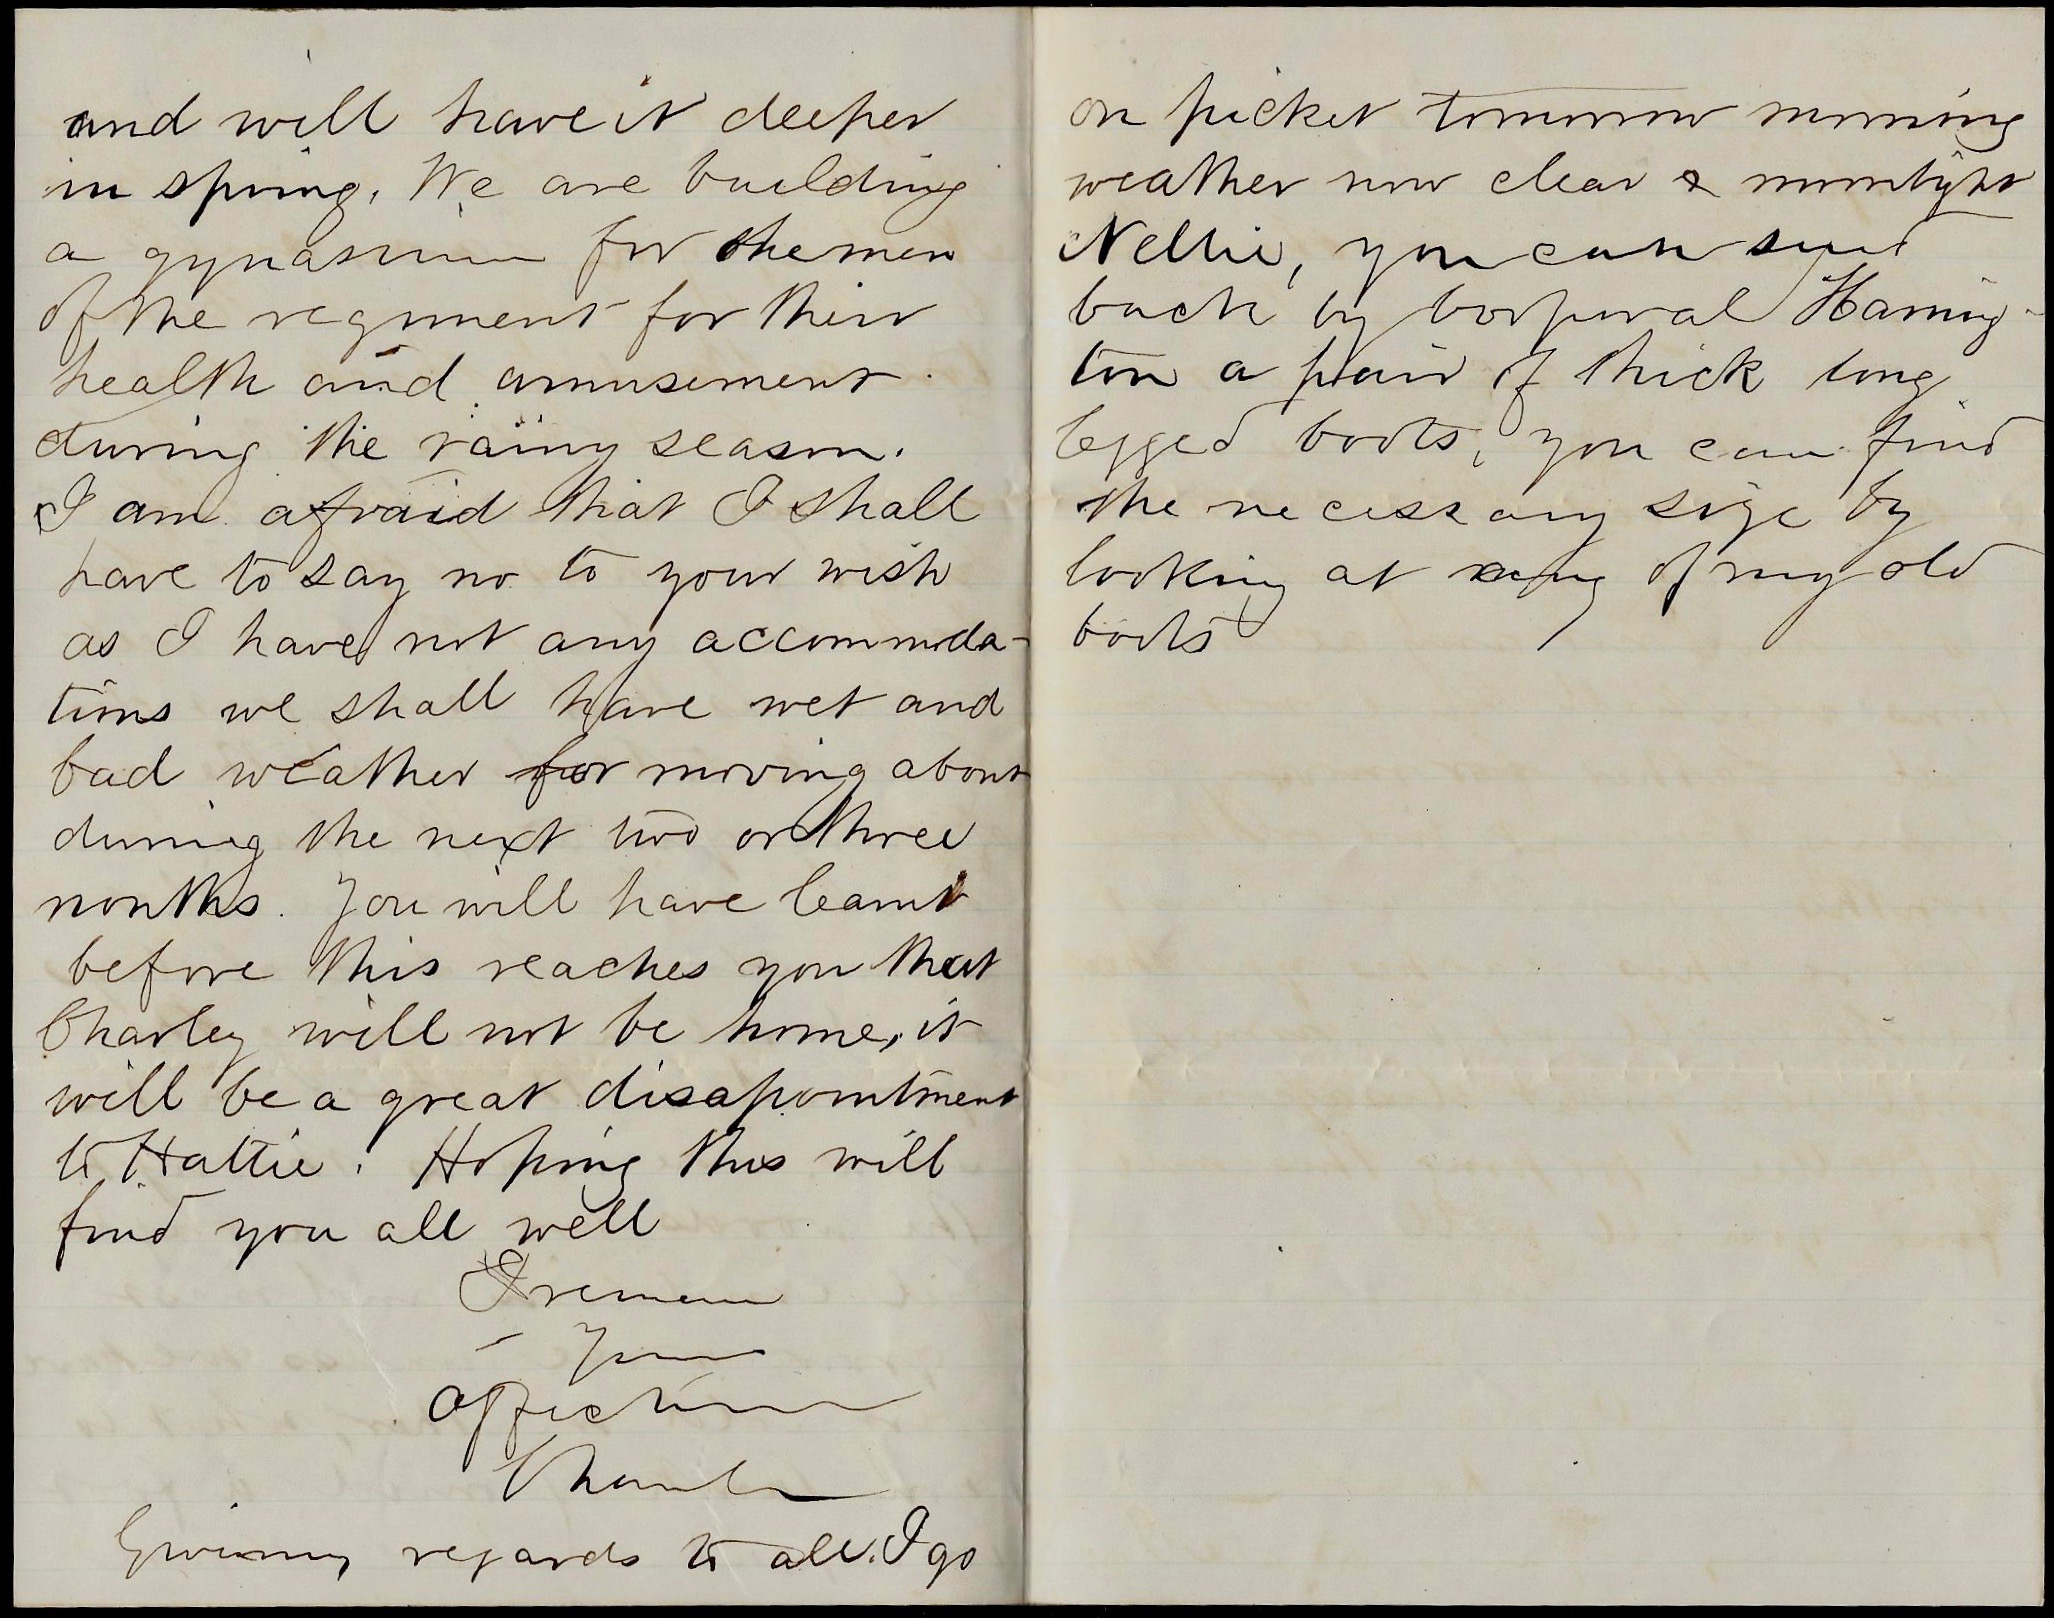 and will have it deeper
in spring. We are building
a gynasium for the men
of the regiment for their
health and amusement
during the rainy season.
I am afraid that I shall
have to say no to your wish
as I have not any accommoda-
tions we shall have wet and
bad weather for moving about
during the next two or three
months. You will have learnt
before this reaches you that
Charley will not be home, it
will be a great disapointment
to Hattie. Hoping this will
find you all well
I remain
Yours
Affection
Charles
Giving regards to all. I go
on picket tomorrow morning
weather now clear & moonlight
Nellie, you can send
back by Corporal Haring-
ton a pair of thick long
legged boots, you can find
the necessary size by
looking at any of my old
boots